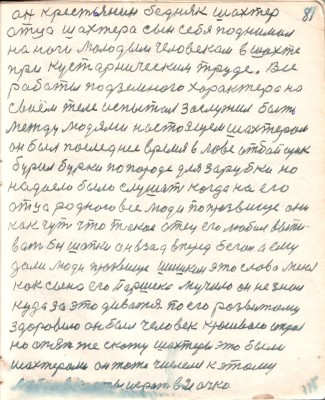 81
ан крестьянин бедняк шахтер
отца шахтера сын себя поднимал
на ноги молодым человеком в шахте
при кустарническим труде. Все
работы подземного характера на
своём теле испытал заслужил быть
между людями настоящем шахтером
он был последнее время в лаве отбойщик
бурил бурки по породе для зарубки но
надоело было слушать когда на его
отца родного все люди по прозвище они
как чуть что т его отец его любил выпи-
вать бы шапки он взад вперед бегал а ему
дали люди прозвище шишкин это слово меня
как сына его Гаршека мучило он не знал
куда за это деватся по его розвитому
здоровию он был человек красивого
но опять же скажу шахтер это были
шахтером он тоже к этому
играть в 21 очко